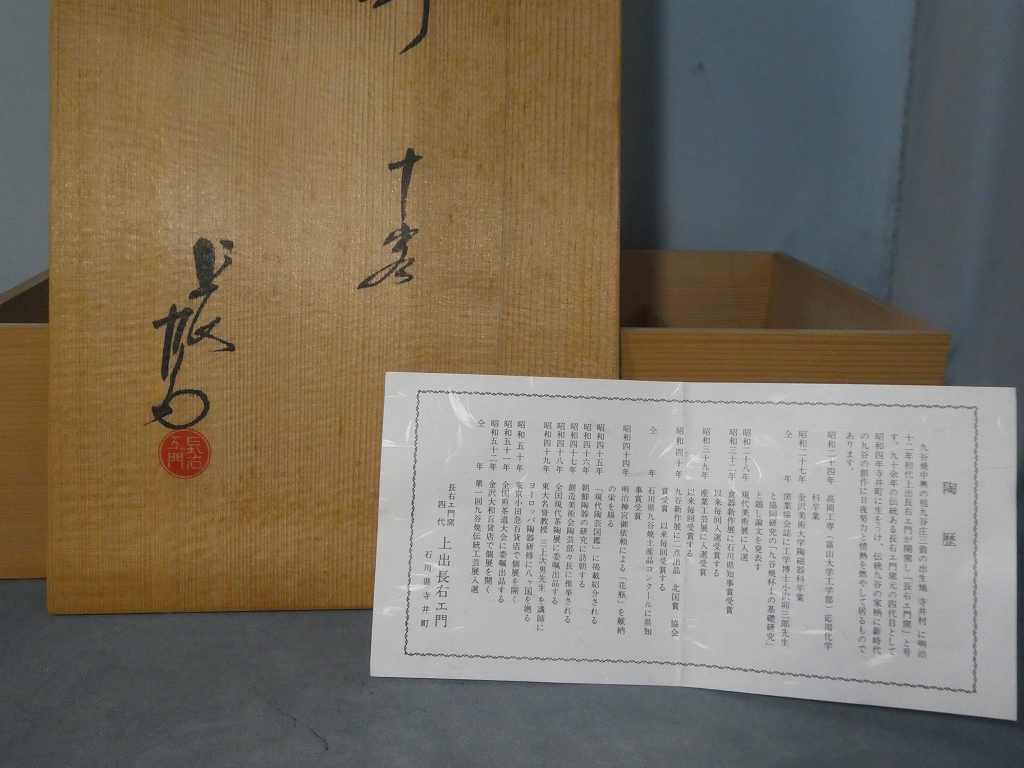 十客
長右
ヱ門
陶歴
九谷焼中興の祖九谷庄三翁の出生地 寺井村 に明治
十二年初代上出長右エ門が開窯し「長右エ門窯」と号
す。九十余年の伝統ある長右エ門窯元の四代目として
昭和四年寺井町に生をうけ、伝統九谷の家柄に新時代
の九谷の創作に日夜努力と情熱を燃やして居るもので
あります。
昭和二十四年 高岡工専(富山大学工学部)応用化学
科卒業
昭和二十七年 金沢美術大学陶磁器科卒業
仝 年 窯業協会誌に工学博士 三郎先生
と協同研究の「九谷焼杯土の基礎研究」
と題し論文を発表す
昭和二十八年 現代美術展に入選
昭和三十二年 食器新作展に石川県知事賞受賞
以来毎回入選受賞する
昭和三十九年 産業工芸展に入選受賞
以来毎回受賞する
昭和四十年 九谷新作展に二点出品 北国賞 協会
賞受賞 以来毎回受賞する
仝 年 石川県九谷焼生産品コンクールに県知
事賞受賞
昭和四十四年 明治神宮御依頼による「花瓶」を献納
の栄を賜る
昭和四十五年 「現代陶芸図鑑」に掲載紹介される
昭和四十六年 朝鮮陶器の研究に訪朝する
昭和四十七年 創造美術会陶芸部々長に推挙される
昭和四十八年 全国現代茶陶展に委嘱出品する
昭和四十九年 東大名誉教授 三上次男先生を講師に
ヨーロッパ陶器研修に八ヶ国を廻る
昭和五十年 東京小田急百貨店で個展を開く
昭和五十一年 全国煎茶道大会に委嘱出品する
昭和五十二年 金沢大和百貨店で個展を開く
仝 年 第一回九谷焼伝統工芸展入選
長右エ門窯
四代 上出長右エ門
石川県寺井町